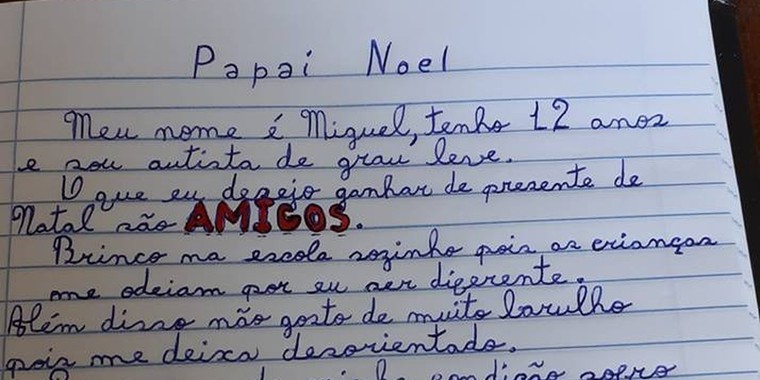 Papai Noel
Meu nome é Miguel, tenho 12 anos
e sou autista de grau leve.
O que eu desejo ganhar de presente de
Natal são AMIGOS.
Brinco na escola sozinho pois as crianças
me odeiam por eu ser diferente.
Além disso não gosto de muito barulho
pois me deixa desorientado.
minha condição sofro